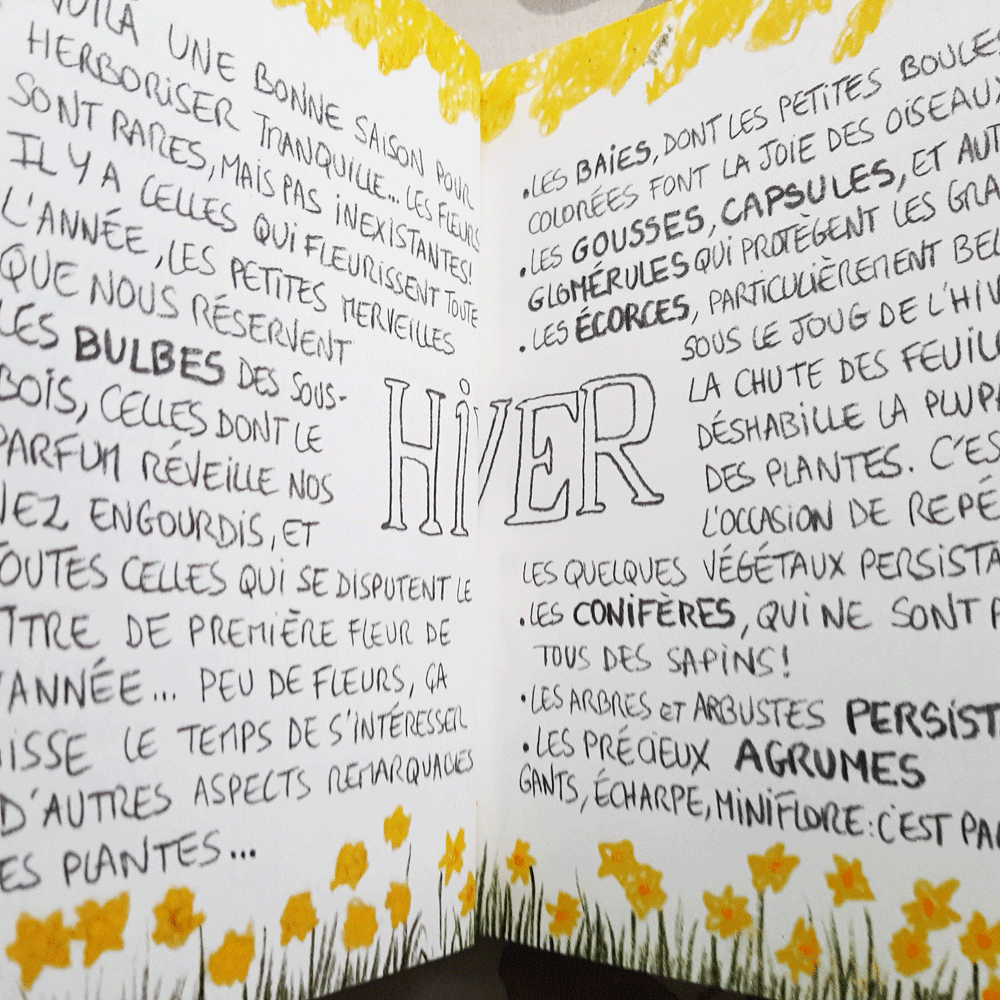 VOILÀ UNE BONNE SAISON POUR
HERBORISER TRANQUILLE... LES FLEURS
SONT RARES, MAIS PAS INEXISTANTES!
IL Y A CELLES QUI FLEURISSENT TOUTE
L'ANNÉE, LES PETITES MERVEILLES
QUE NOUS RÉSERVENT
LES BULBES DES SOUS-
BOIS, CELLES DONT LE
PARFUM RÉVEILLE NOS
NEZ ENGOURDIS, ET
TOUTES CELLES QUI SE DISPUTENT LE
TITRE DE PREMIÈRE FLEUR DE
L'ANNÉE... PEU DE FLEURS, ÇA
LAISSE LE TEMPS DE S'INTÉRESSER
D'AUTRES ASPECTS REMARQUABLES
DES PLANTES...
HIVER
.LES BAIES, DONT LES PETITES BOULES
COLORÉES FONT LA JOIE DES OISEAUX
.LES GOUSSES, CAPSULES, ET AUT
GLOMÉRULES QUI PROTÈGENT LES GRA
.LES ÉCORCES, PARTICULIÈREMENT BEL
SOUS LE JOUG DE L'HIV
LA CHUTE DES FEUIL
DÉSHABILLE LA PLUPA
DES PLANTES. C'ES
L'OCCASION DE REPÉ
LES QUELQUES VÉGÉTAUX PERSISTA
.LES CONIFÈRES, QUI NE SONT P
TOUS DES SAPINS!
.LES ARBRES ET ARBUSTES PERSIST
.LES PRÉCIEUX AGRUMES
GANTS, ÉCHARPE, MINIFLORE: C'EST PAR